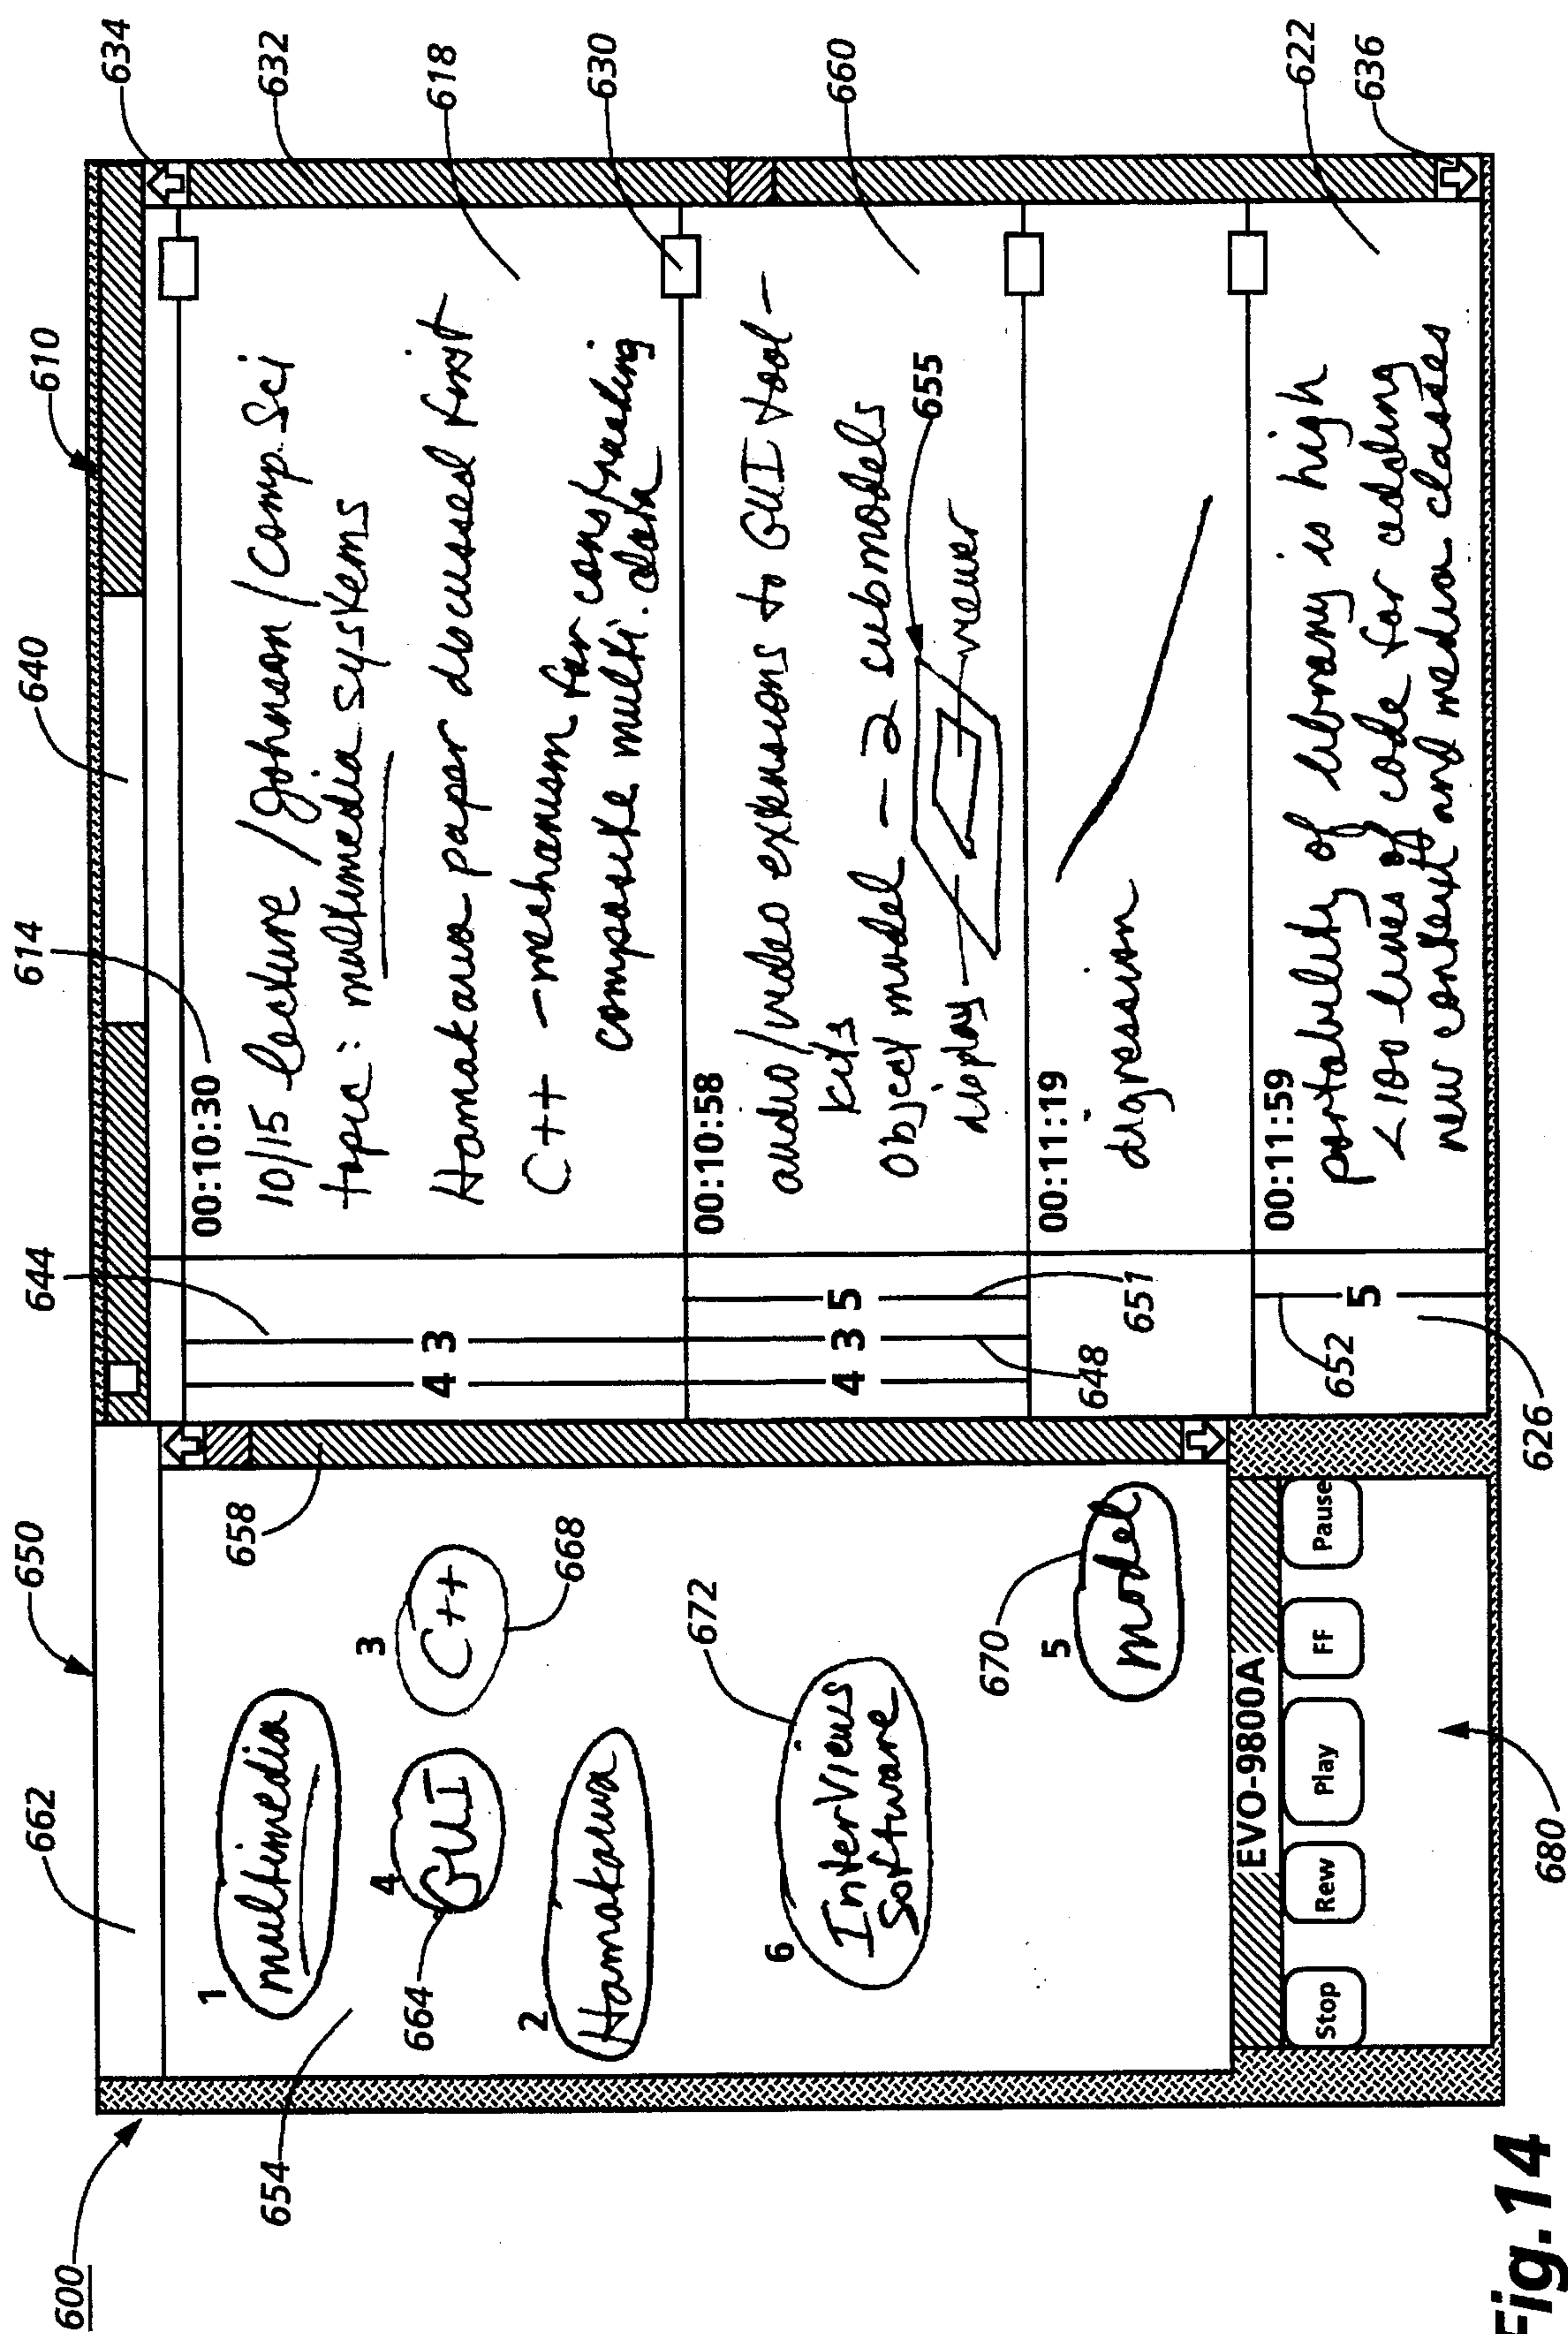 600
650
662
654
1
multimedia
3
C++
668
4
GUI
664
2
Hamakawa
6
InterViews
Software
672
5
model
670
658
EVO-9800A
Stop
Rew
Play
FF
Pause
680
610
644
614
640
634
632
618
630
660
622
636
00:10:30
10/15 lecture / Johnson / Comp. Sci
topic: multimedia systems
Hamakawa paper discussed first
C++ - mechanism for cons/reading
composite multi. data
4 3
00:10:58
audio/video extensions to GUI tool-
kits
Object model - 2 submodels
display
viewer
655
4 3 5
651
648
00:11:19
digression
00:11:59
portability of library is high
<100 lines of code for adding
new context and media classes
5
652
626
Fig.14